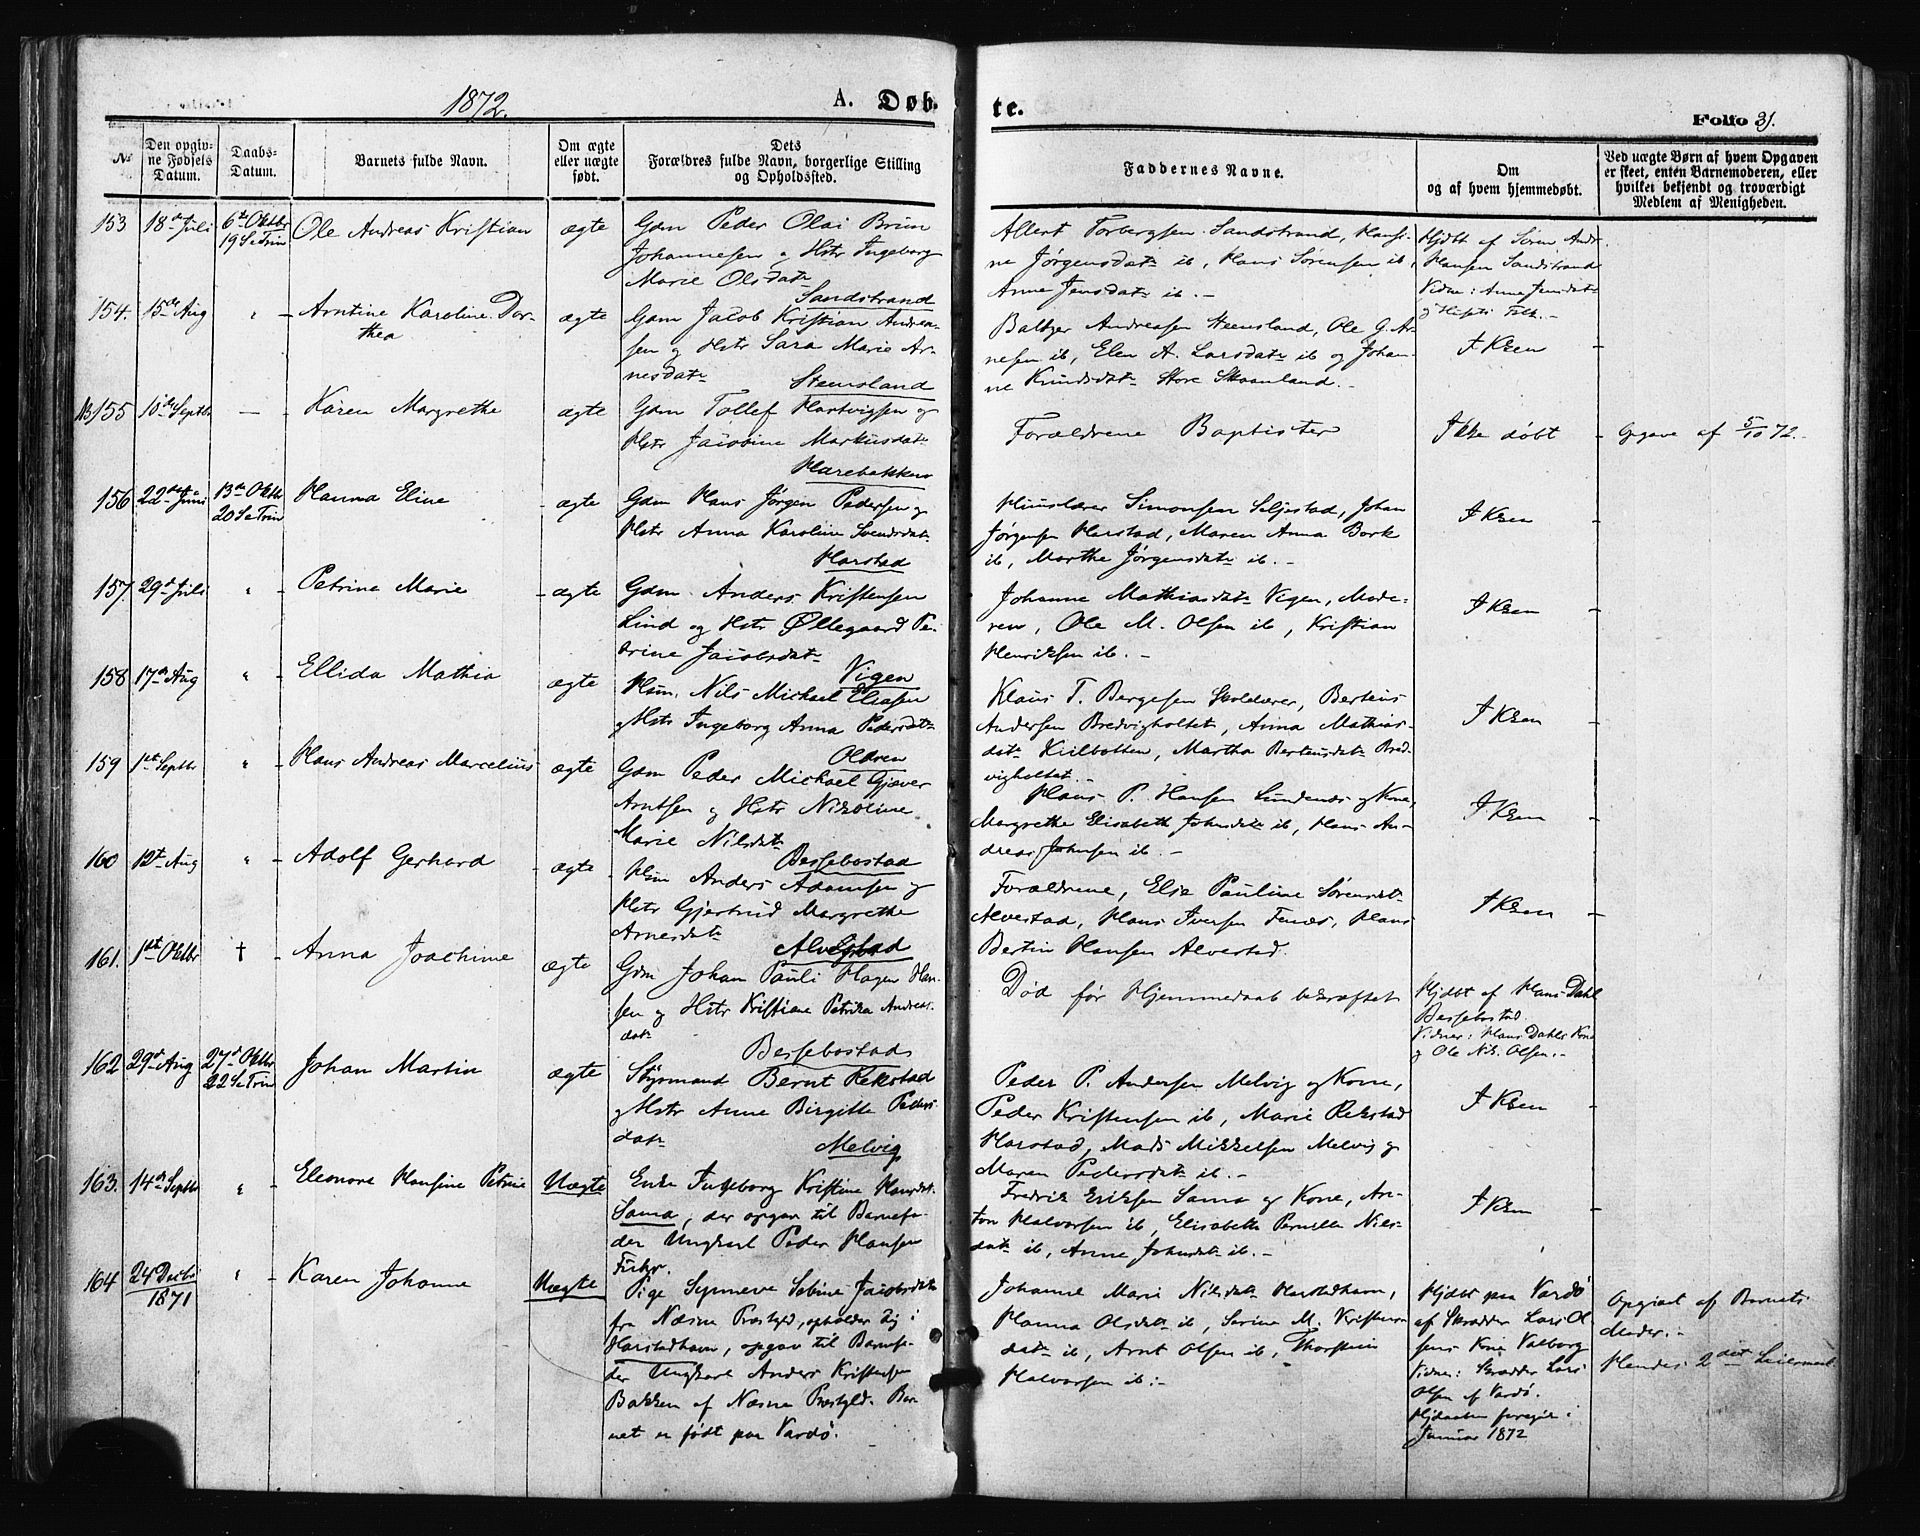 1872.
A. Døb-
te.
Folio 31.
№
Den opgiv-
ne Fødsels
Datum.
Daabs-
Datum.
Barnets fulde Navn.
Om ægte
eller uægte
født.
Dets
Forældres fulde Navn, borgerlige Stilling
og Opholdssted.
Faddernes Navne.
Om
og af hvem hjemmedøbt.
Ved uægte Børn af hvem Opgaven
er skeet, enten Barnemoderen, eller
hvilket bekjendt og troværdigt
Medlem af Menigheden.
153
18de Juli
6te Oktbr
19 S e Trin
Ole Andreas Kristian
ægte
Gdm Peder Olai Brun
Johannesen og Hstr Ingeborg
Marie Olsdatr
Sandstrand
Allert Torbergsen Sandstrand, Hansi-
ne Jørgensdatr ib, Hans Sørensen ib,
Anne Jensdatr ib. -
Hjdbt af Søren Andr.
Hansen Sandstrand
Vidne: Anne Jensdatr
og Husets Folk. -
154.
15de Aug
"
Arntine Karoline Dor-
thea
ægte
Gdm Jacob Kristian Andrea-
sen og Hstr Sara Marie Ar-
nesdatr
Steensland
Baltzer Andreasen Steensland, Ole G. Ar-
nesen ib, Elen A. Larsdatr ib og Johan-
ne Knudsdatr Store Skaanland. -
I Krken
155
10de Septbr
—
Karen Margrethe
ægte
Gdm Tollef Hartvigsen og
Hstr Jacobine Markusdatr
Harebakken
Forældrene Baptister
Ikke døbt
Opgave af 5/10 72.
156
22de Juni
13de Oktbr
20 S e Trin
Hanna Eline
ægte
Gdm Hans Jørgen Pedersen og
Hstr Anna Karoline Svendsdatr
Harstad
Huuslærer Simonsen Seljestad, Johan
Jørgensen Harstad, Maren Anna Bork
ib, Marthe Jørgensdatr ib. -
I Krken
157.
29de Juli
"
Petrina Marie
ægte
Gdm Anders Kristensen
Lind og Hstr Øllegaard Pe-
trine Jacobsdatr
Vigen
Johanne Mathiasdatr Vigen, Mode-
ren, Ole M. Olsen ib, Kristian
Henriksen ib. -
I Krken
158
17de Aug
"
Ellida Mathia
ægte
Hsm. Nils Michael Eliasen
og Hstr Ingeborg Anna Pedersdatr
Oldren
Klaus T. Bergesen Skolelærer, Berteus
Andersen Bredvigholtet, Anna Mathias-
datr Kilbotten, Martha Berteusdatr Bred-
vigholtet
I Krken
159
1ste Septbr
"
Hans Andreas Marcelius
ægte
Gdm Peder Michael Gjæver
Arntsen og Hstr Nikoline
Marie Nilsdatr
Bessebostad
Hans P. Hansen Lundenes og Kone,
Margrethe Elisabeth Johnsdatr ib, Hans An-
dreas Johnsen ib. -
I Krken
160
12te Aug
"
Adolf Gerhard
ægte
Hsm Anders Adamsen og
Hstr Gjertrud Margrethe
Arnesdatr
Alvestad
Forældrene, Else Pauline Sørensdatr
Alvestad, Hans Iversen Fenes, Hans
Bertin Hansen Alvestad.
I Krken
161.
1ste Oktbr
†
Anna Joachime
ægte
Gdm Johan Pauli Hagen Han-
sen og Hstr Kristiane Petrikka Andreas-
datr
Bessebostad
Død før Hjemmedaab bekræftet
Hjdbt af Hans Dahl
Bessebostad.
Vidner: Hans Dahls Kone
og Ole Nik. Olsen. -
162
29de Aug
27de Oktbr
22 S e Trin
Johan Martin
ægte
Styrmand Bernt Rekstad
og Hstr Anne Birgitte Peders-
datr
Melvig
Peder P. Andersen Melvig og Kone,
Peder Kristensen ib, Marie Rekstad
Harstad, Mads Mikkelsen Melvig og
Maren Pedersdatr ib. -
I Krken
163.
14de Septbr
"
Eleonora Hansine Petrine
Uægte
Enke Ingeborg Kristine Hansdatr
Sama, der opgav til Barnefa-
der Ungkarl Peder Hansen
Fredrik Eriksen Sama og Kone, An-
ton Halvorsen ib, Elisabeth Pernille Nils-
datr ib, Anne Johnsdatr ib. -
I Krken
164
24 Decbr
1871
"
Karen Johanne
Uægte
Pige Synneve Sebine Jacobsdatr
fra Næsne Præstgld, opholder sig i
Harstadhavn, opgav til Barnefa-
der Ungkarl Anders Kristensen
Bakken af Næsne Præstgld. Bar-
net er født paa Vardø.
Johanne Marie Nilsdatr Harstadhavn,
Hanna Olsdatr ib, Serine M. Kristens-
datr ib, Arnt Olsen ib, Thorstein
Halvorsen ib: -
Hjdbt paa Vardø
af Skræder Lars Ol-
sens Kone Valborg
Vidne: Skræder Lars
Olsen af Vardø.
Hjdaaben foregik i
Januar 1872
Opgivet af Barnets
Moder. -
Hendes 2det Leiermaal